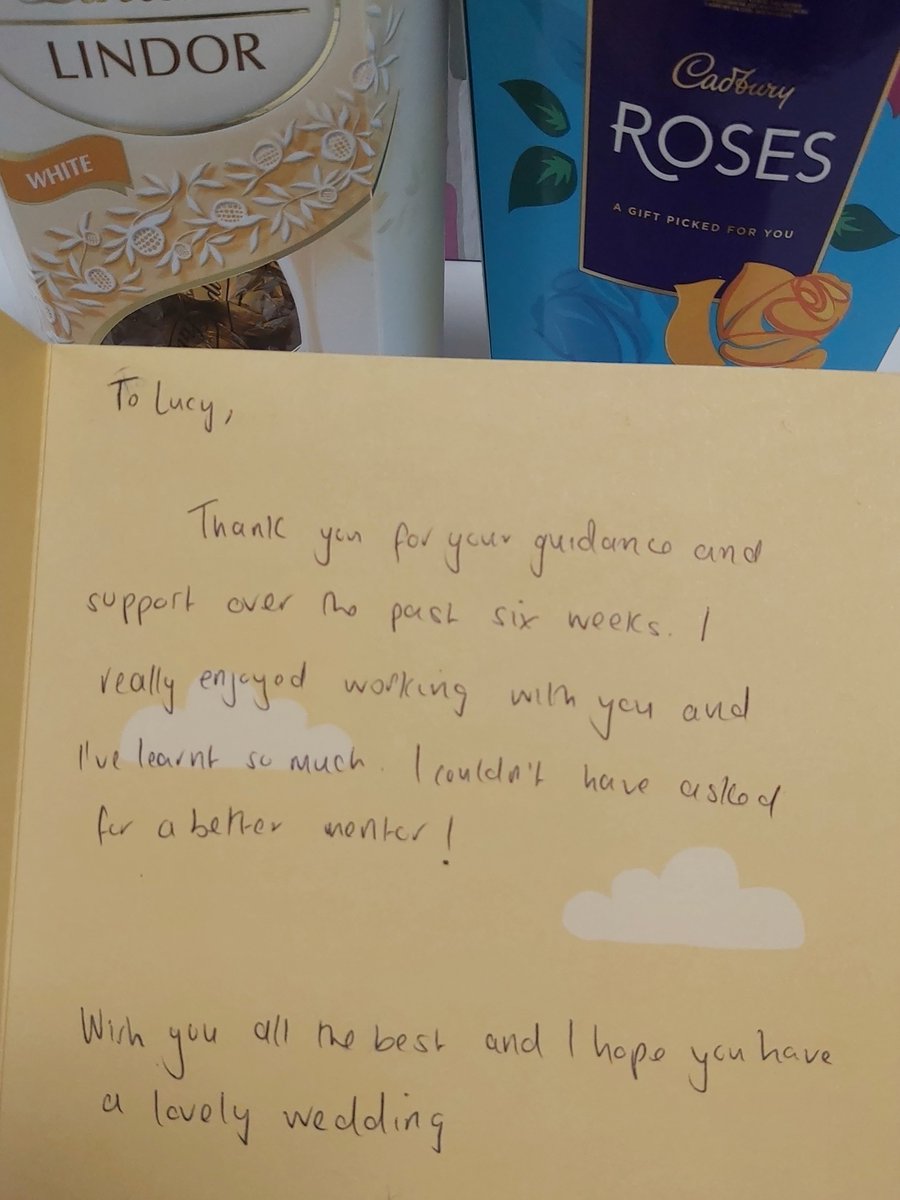 LINDOR
WHITE
Cadbury
ROSES
A GIFT PICKED FOR YOU
To Lucy,
Thank you for your guidance and
support over the past six weeks. I
really enjoyed working with you and
I've learnt so much. I couldn't have asked
for a better mentor!
Wish you all the best and I hope you have
a lovely wedding